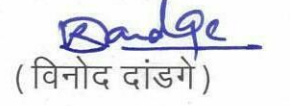 Dandge
(विनोद दांडगे)